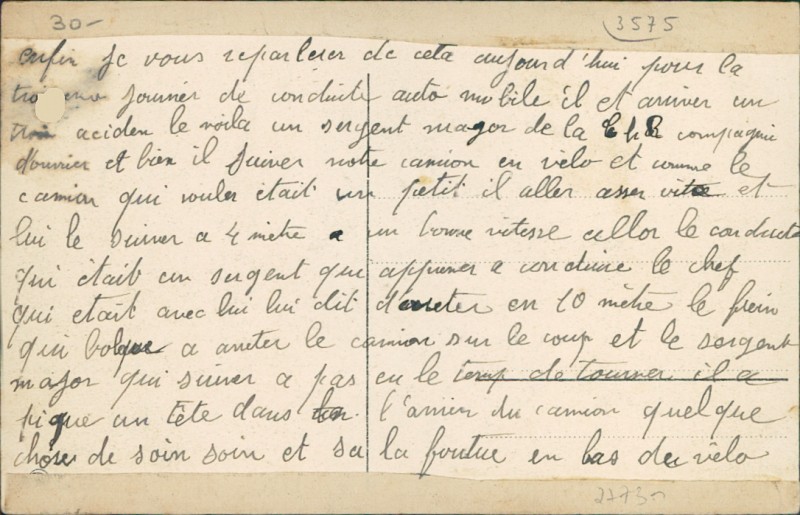 30-
3575
enfin je vous reparlerer de cela aujourd'hui pour la
journer de conduite auto mobile il et ariver un
aciden le voila un sergent major de la compagnie
d'ouvrier et bien il suiver notre camion en vélo et comme le
camion qui vouler était un petit il aller asser vite et
lui le suiver a 4 mètre a un bonne vitesse allor le conduct
qui était un sergent qui apprener a conduire le chef
qui etait avec lui lui dit d'areter en 10 mètre le frein
qui a areter le camion sur le coup et le sergent
major qui suiver a pas eu le temp de tourner il a
pique un tête dans l'arrier du camion quelque
chose de soin soin et sa la foutue en bas du vélo